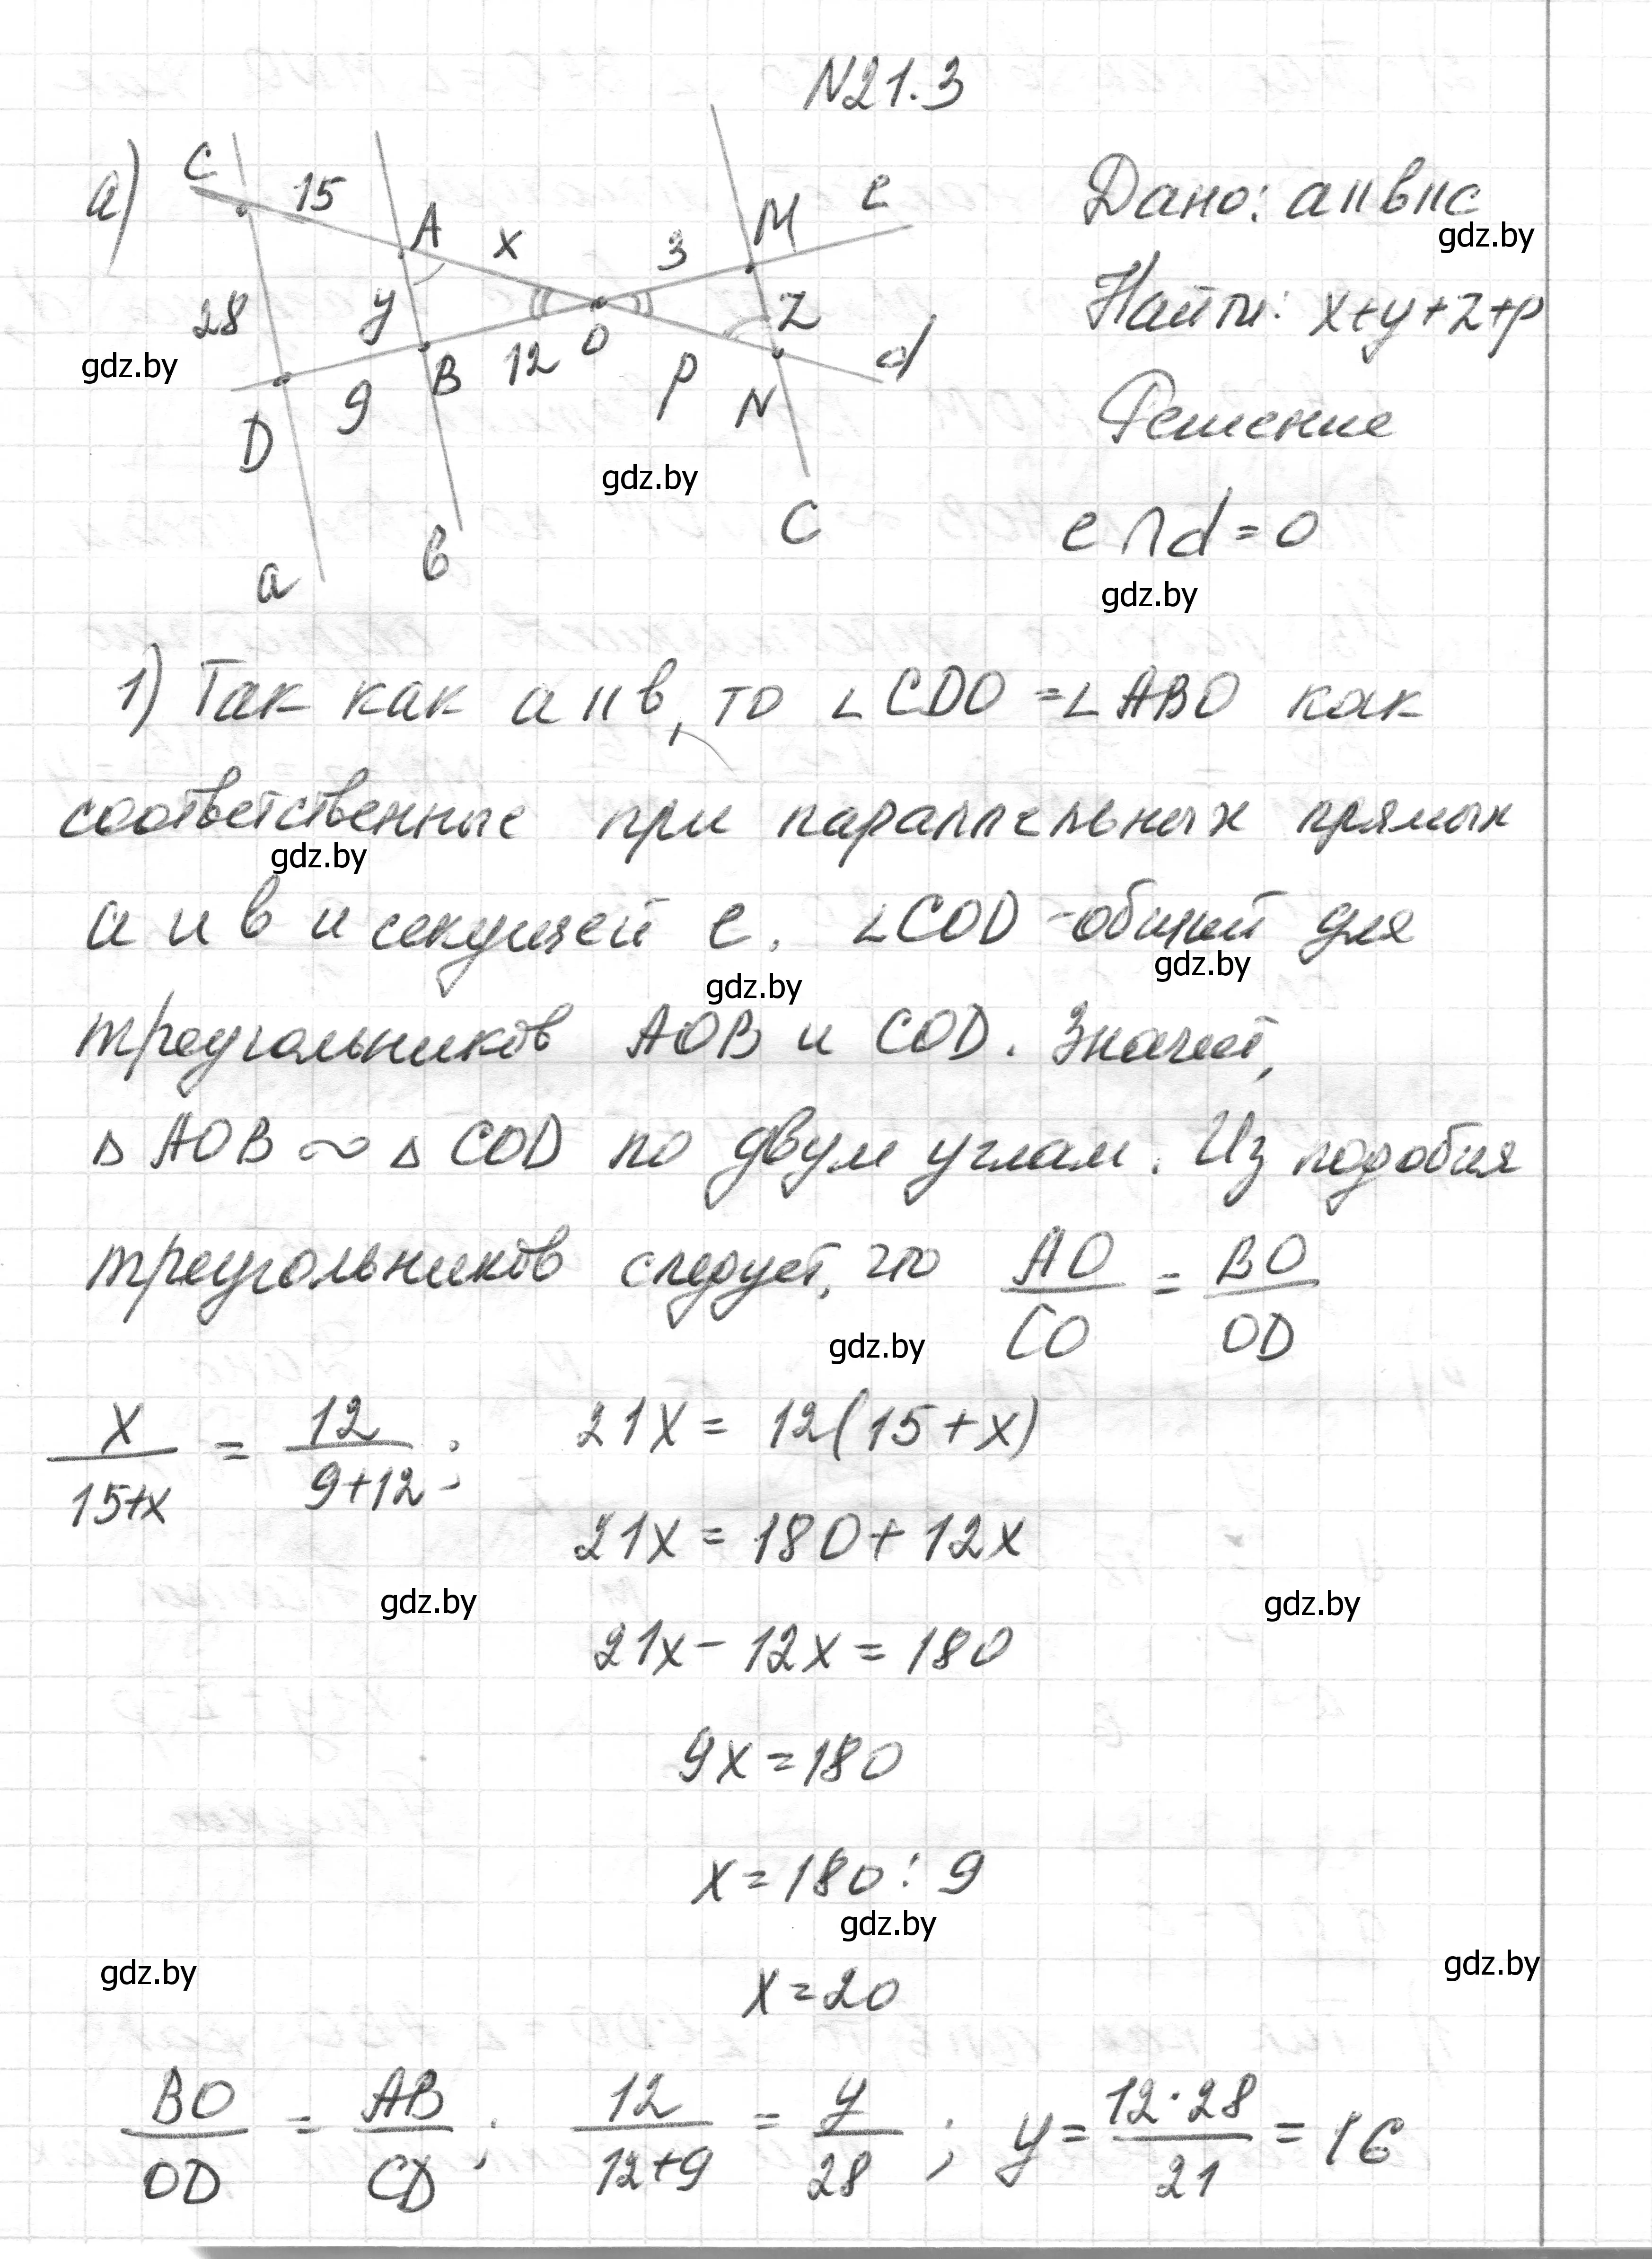 N21.3
а)
C 15 A x 3 M e
28 y 12 O p z d
D 9 B N
a в C
Дано: a||в||c
gdz.by
Найти: x+y+z+p
gdz.by
Решение
gdz.by
e ∩ d = O
gdz.by
1) Так как a||в, то ∠CDO = ∠ABO как
соответственные при параллельных прямых
gdz.by
а и в и секущей e. ∠COD - общий для
gdz.by
gdz.by
треугольников AOB и COD. Значит,
△ AOB ~ △ COD по двум углам. Из подобия
треугольников следует, что AO/CO = BO/OD
gdz.by
x/(15+x) = 12/(9+12); 21x = 12(15+x)
21x = 180 + 12x
gdz.by gdz.by
21x - 12x = 180
9x = 180
x = 180 : 9
gdz.by
gdz.by gdz.by
x = 20
BO/OD = AB/CD; 12/(12+9) = y/28; y = 12·28/21 = 16